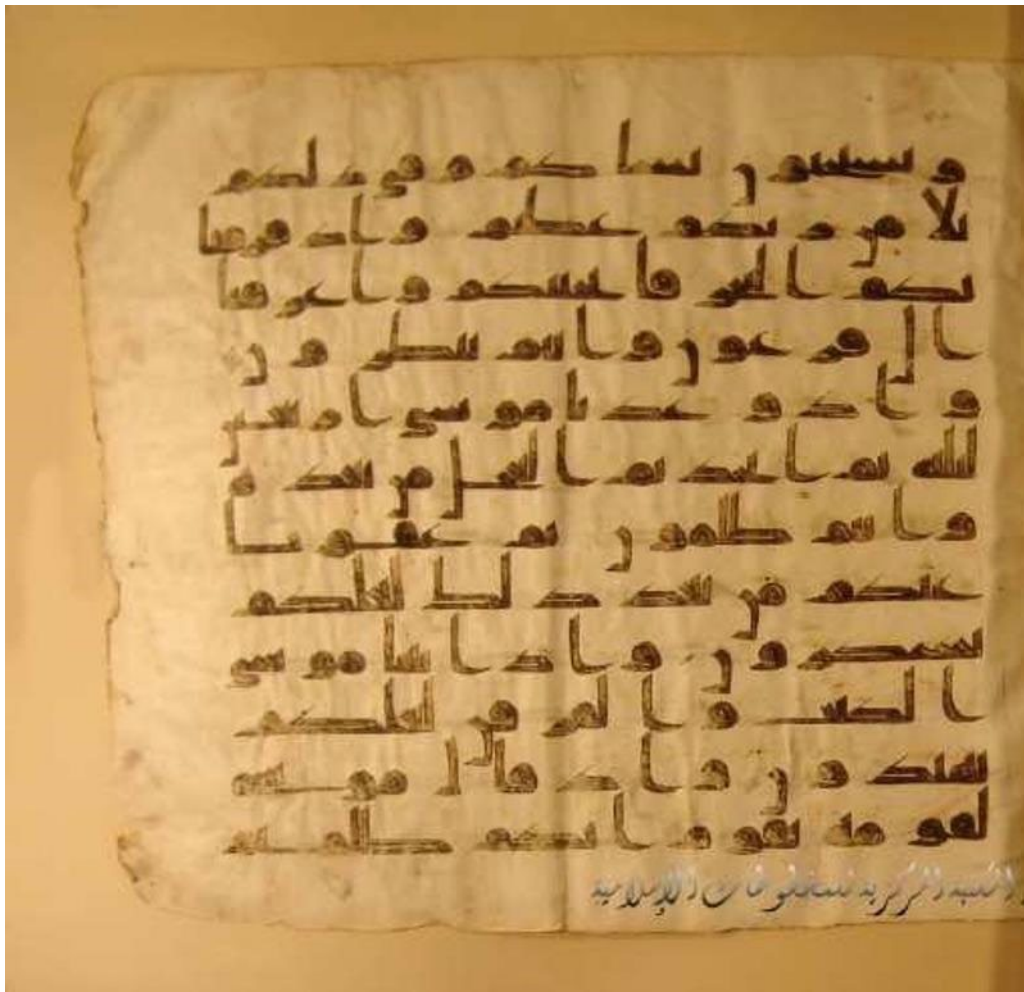 و يستحيون نساكم و في ذلكم
بلا من ربكم عظيم و اذ فرقنا
بكم البحر فانجينكم و اغرقنا
ال فرعون و انتم تنظرون
و اذ وعدنا موسى اربعين
ليله ثم اتخذتم العجل من بعده
و انتم ظلمون ثم عفونا
عنكم من بعد ذلك لعلكم
تشكرون و اذ اتينا موسى
الكتب و الفرقن لعلكم
تهتدون و اذ قال موسى
لقومه يقوم انكم ظلمتم
المكتبة المركزية للمخطوطات الإسلامية